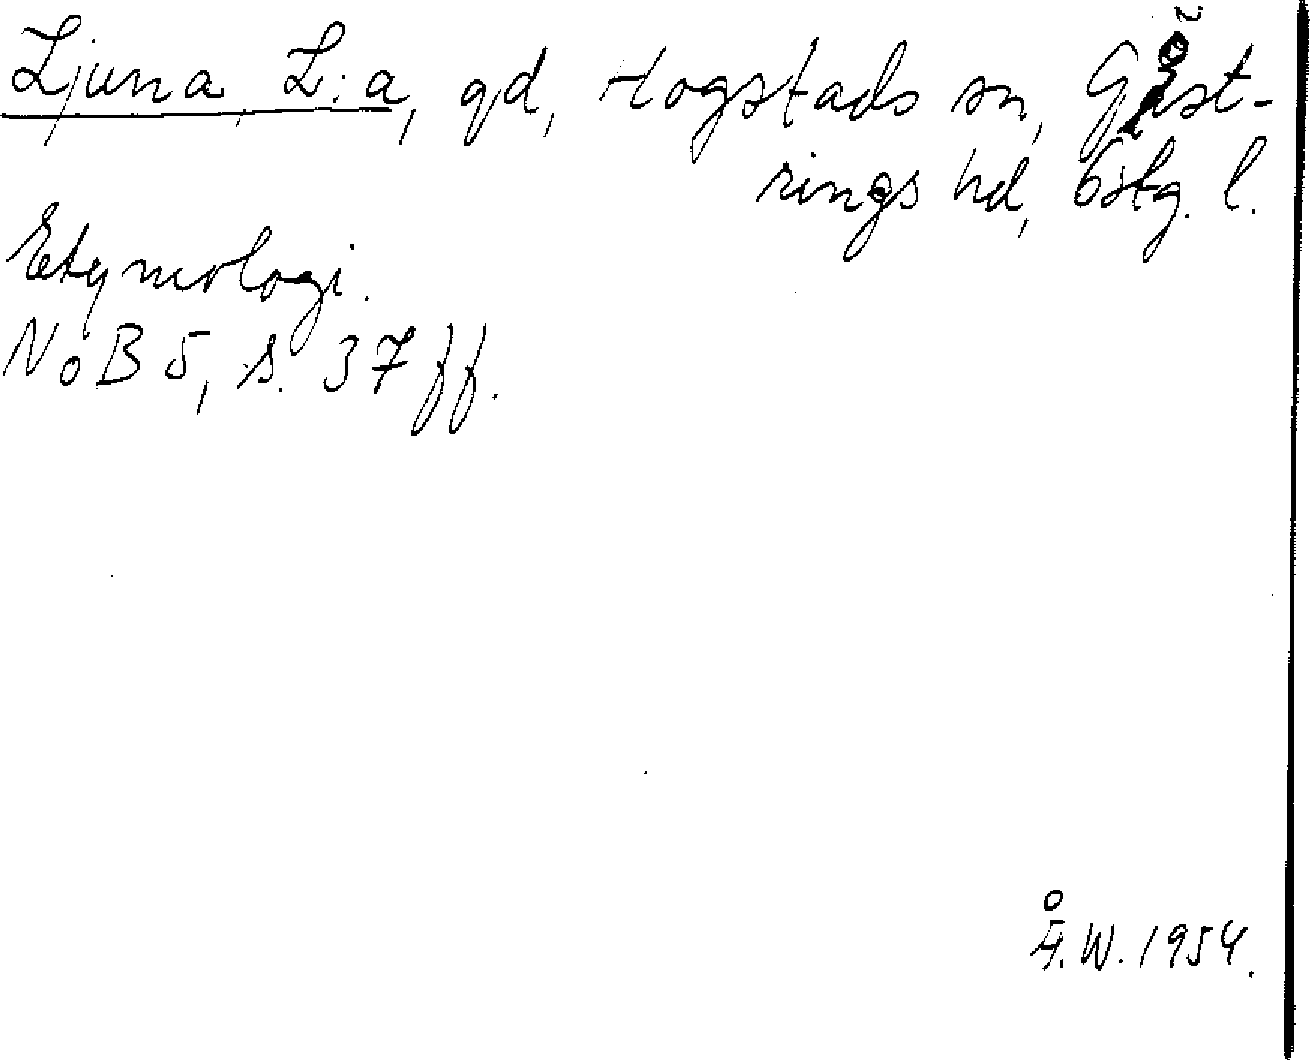 Ljuna, L:a, gd, Hogstads sn, Göst-
rings hd, Östg. l.
Etymologi.
NoB 5, s. 37 ff.
Å.W. 1954.